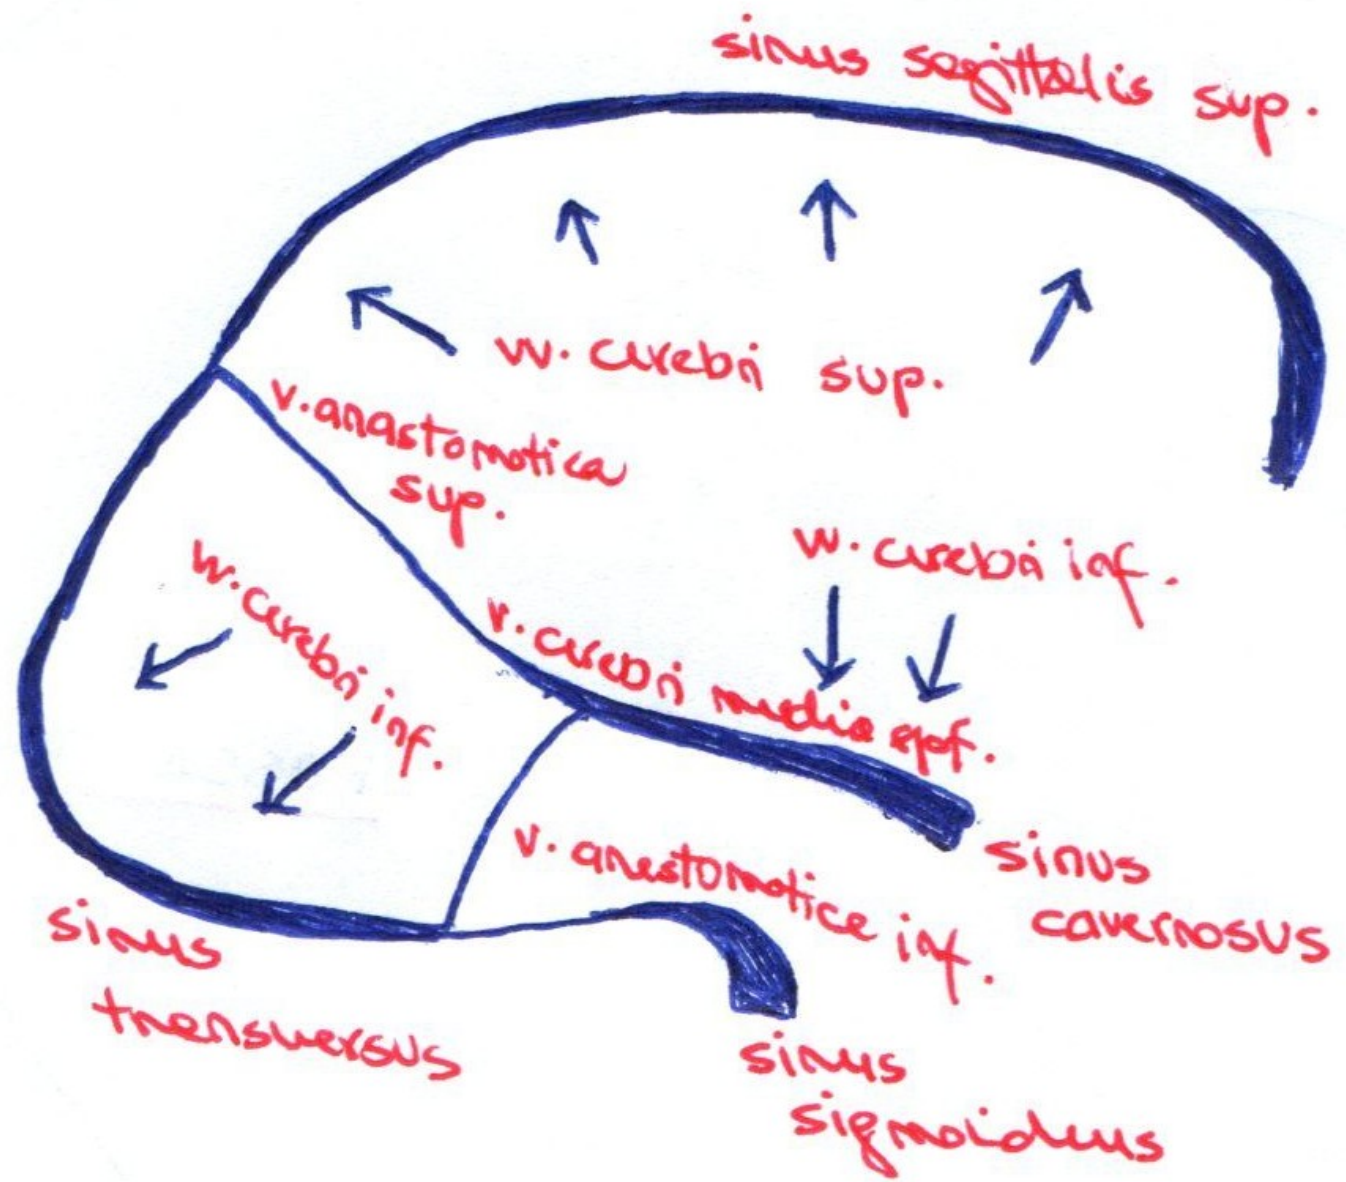 sinus sagittalis sup.
vv. cerebri sup.
v. anastomotica
sup.
vv. cerebri inf.
vv. cerebri inf.
v. cerebri media spf.
v. anastomotica inf.
sinus
cavernosus
sinus
transversus
sinus
sigmoideus